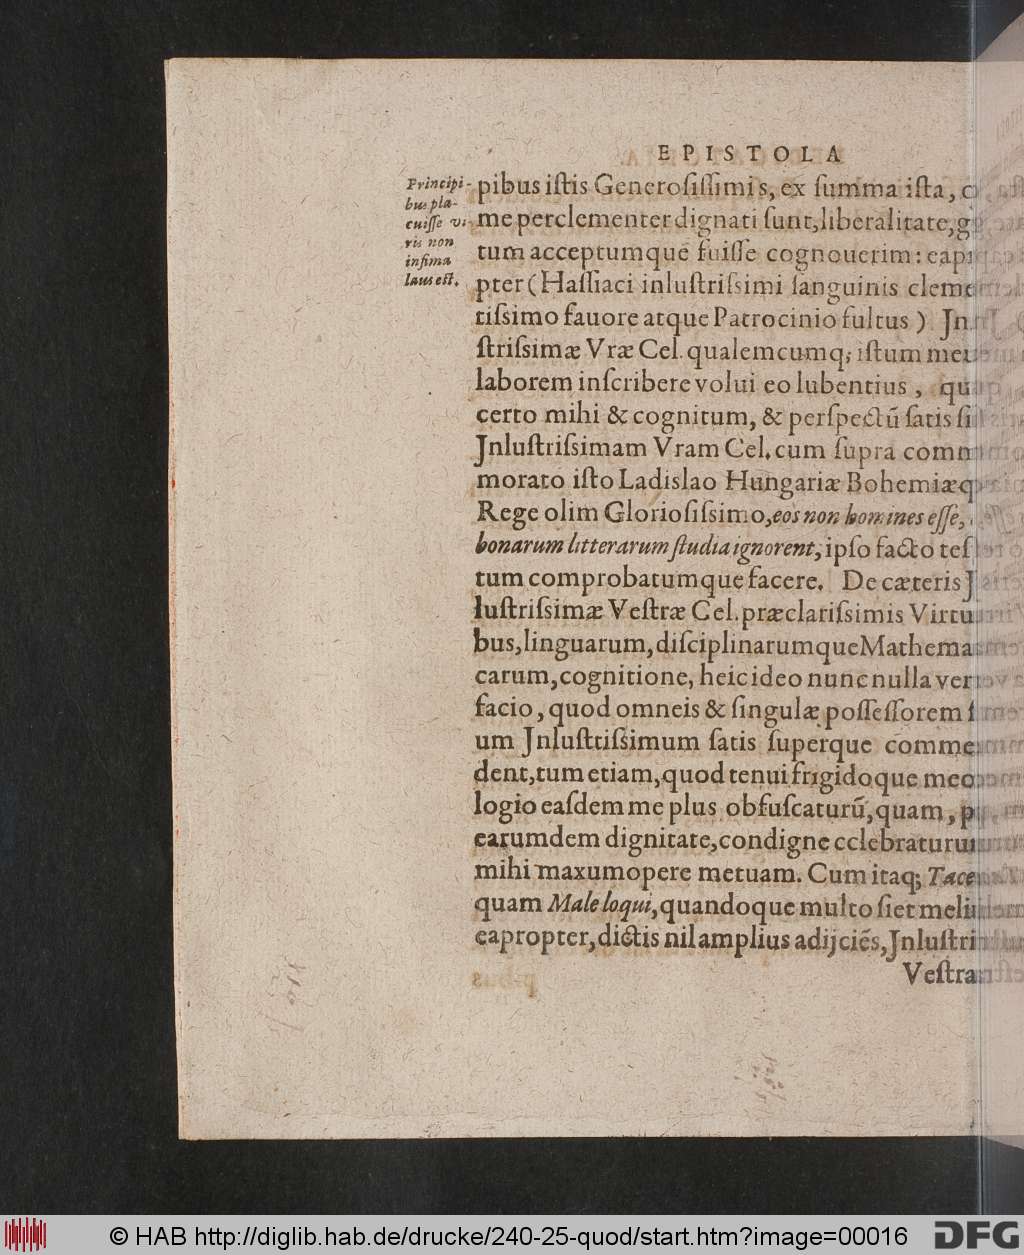 EPISTOLA
Principi-
bus pla-
cuisse vi-
ris non
infima
laus est.
pibus iſtis Generoſiſſimis, ex ſumma iſta,
me perclementer dignati ſunt, liberalitate,
tum acceptumque fuiſſe cognouerim:
pter (Haſſiaci inluſtriſsimi ſanguinis
tiſsimo fauore atque Patrocinio fultus)
ſtriſsimæ Vræ Cel. qualemcumq; iſtum
laborem inſcribere volui eo lubentius,
certo mihi & cognitum, & perſpectū ſatis
Jnluſtriſsimam Vram Cel. cum ſupra
morato iſto Ladislao Hungariæ Bohemiæq
Rege olim Glorioſiſsimo, eos non homines eſſe,
bonarum litterarum ſtudia ignorent, ipſo facto teſ
tum comprobatumque facere. De cæteris J
luſtriſsimæ Veſtræ Cel. præclariſsimis Virtu
bus, linguarum, diſciplinarumque Mathema
carum, cognitione, heic ideo nunc nulla
facio, quod omneis & ſingulæ poſſeſſorem
um Jnluſtriſsimum ſatis ſuperque
dent, tum etiam, quod tenui frigidoque meo
logio eaſdem me plus obfuſcaturū, quam,
earumdem dignitate, condigne celebraturu
mihi maxumopere metuam. Cum itaq; Tace
quam Male loqui, quandoque multo fiet
eapropter, dictis nil amplius adijciēs, Jnluſtri
Veſtra
© HAB http://diglib.hab.de/drucke/240-25-quod/start.htm?image=00016
DFG